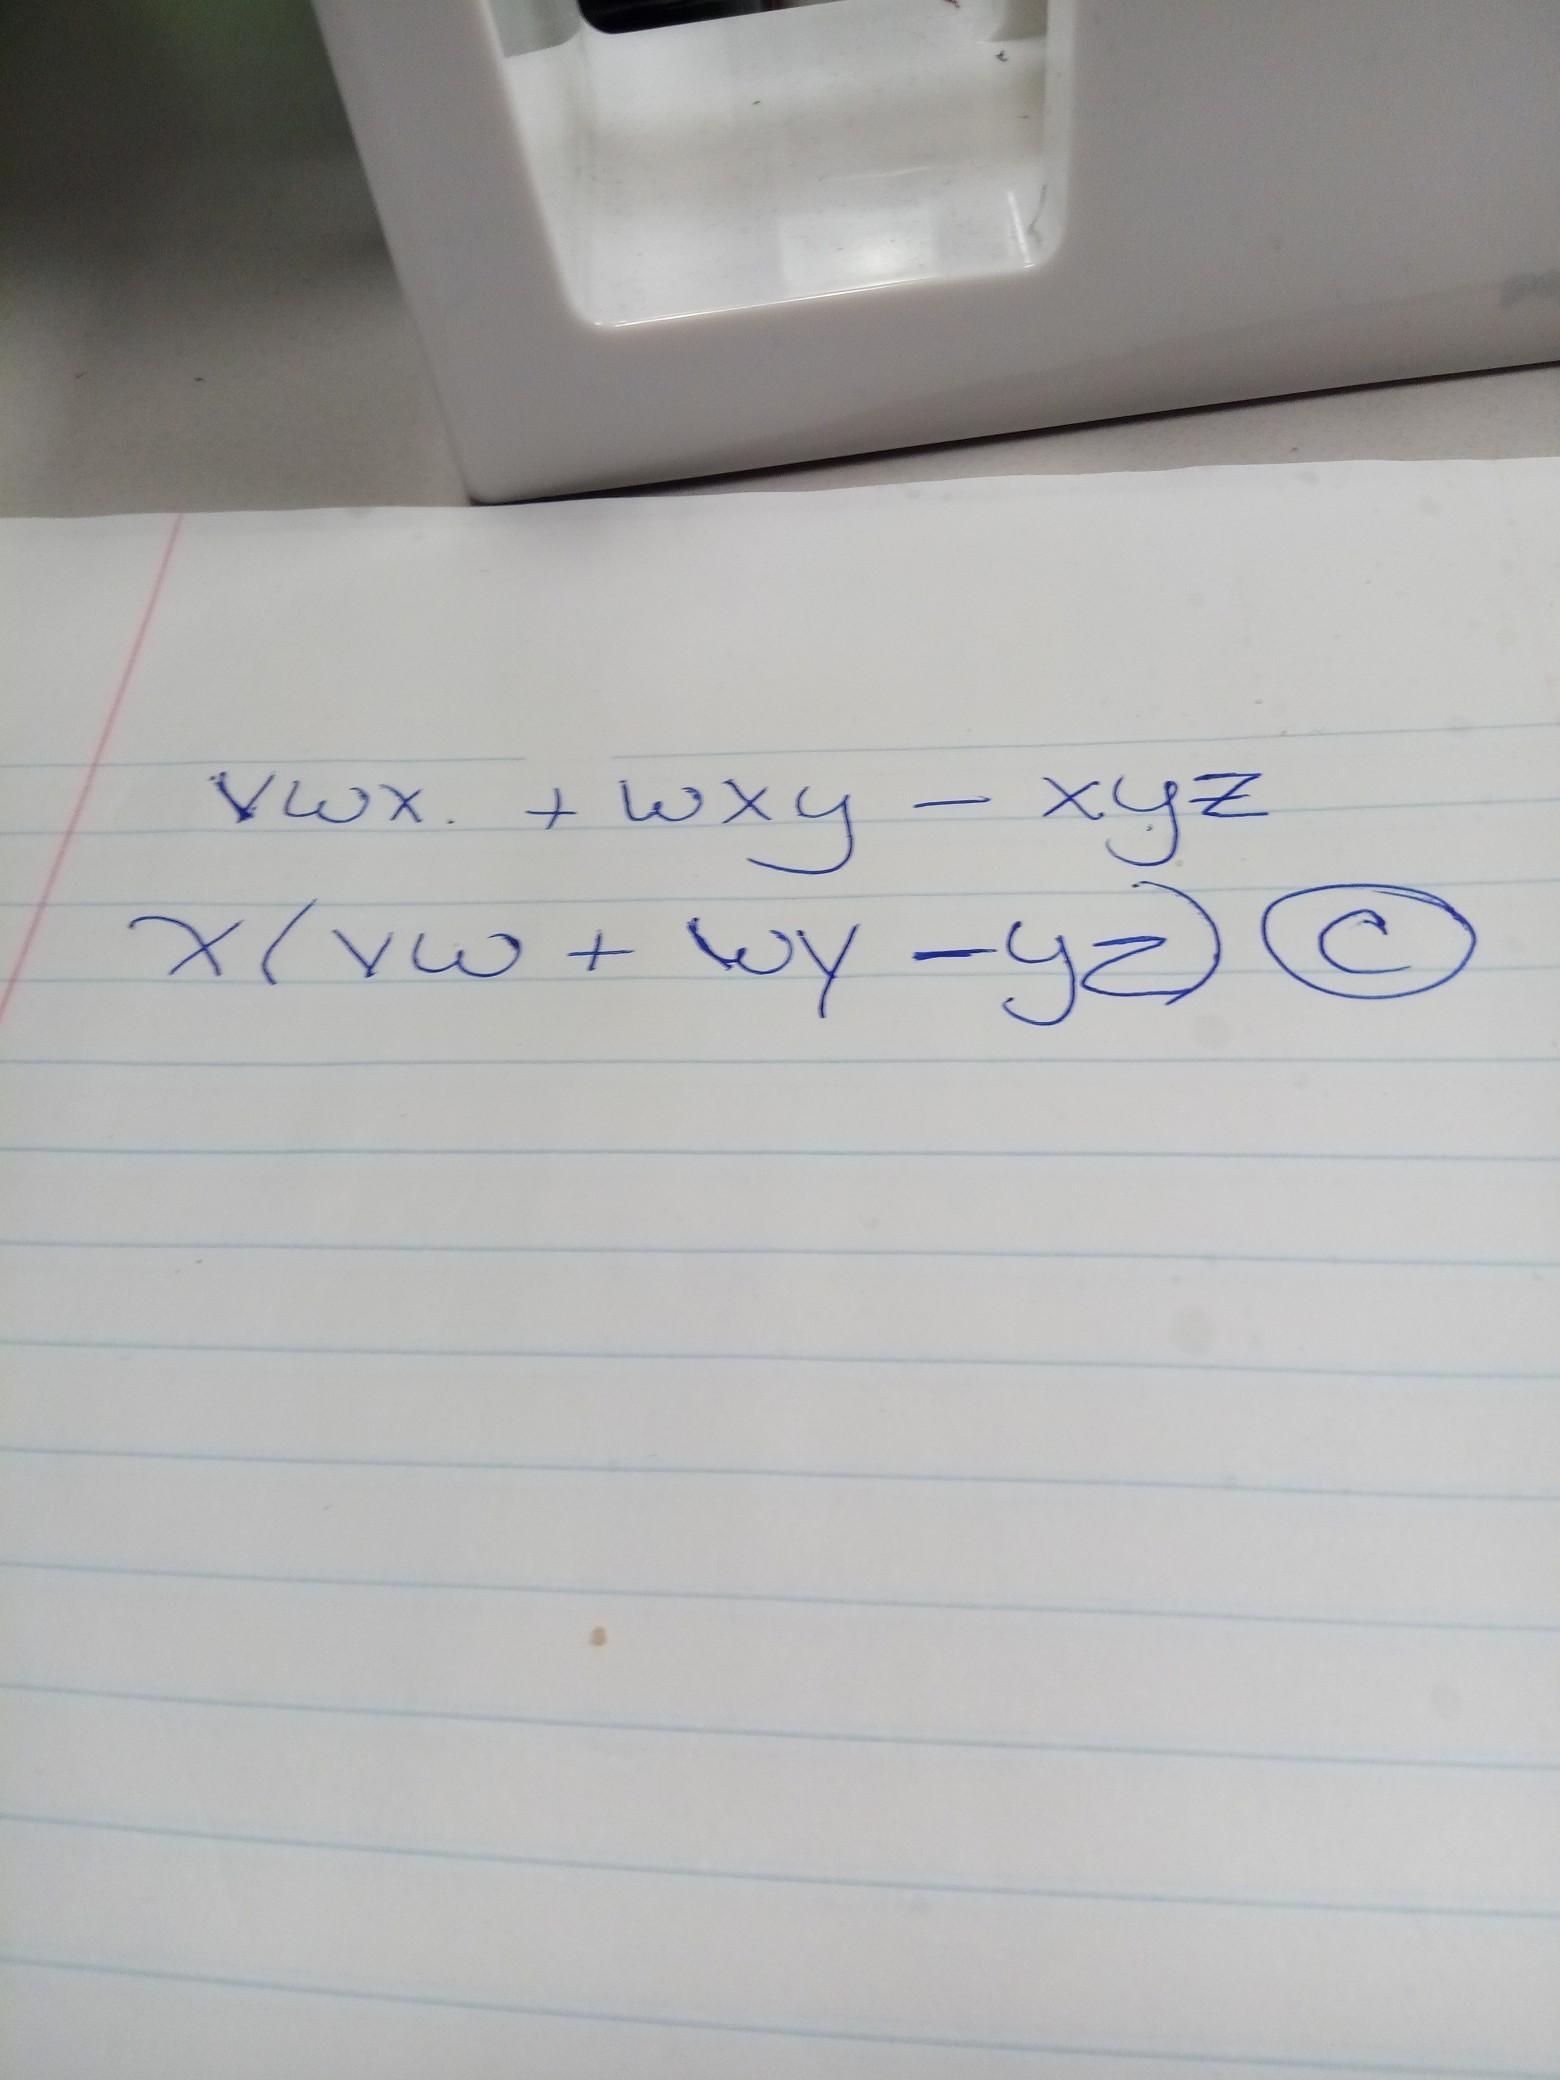 vwx. + wxy - xyz
x(vw + wy - yz) C